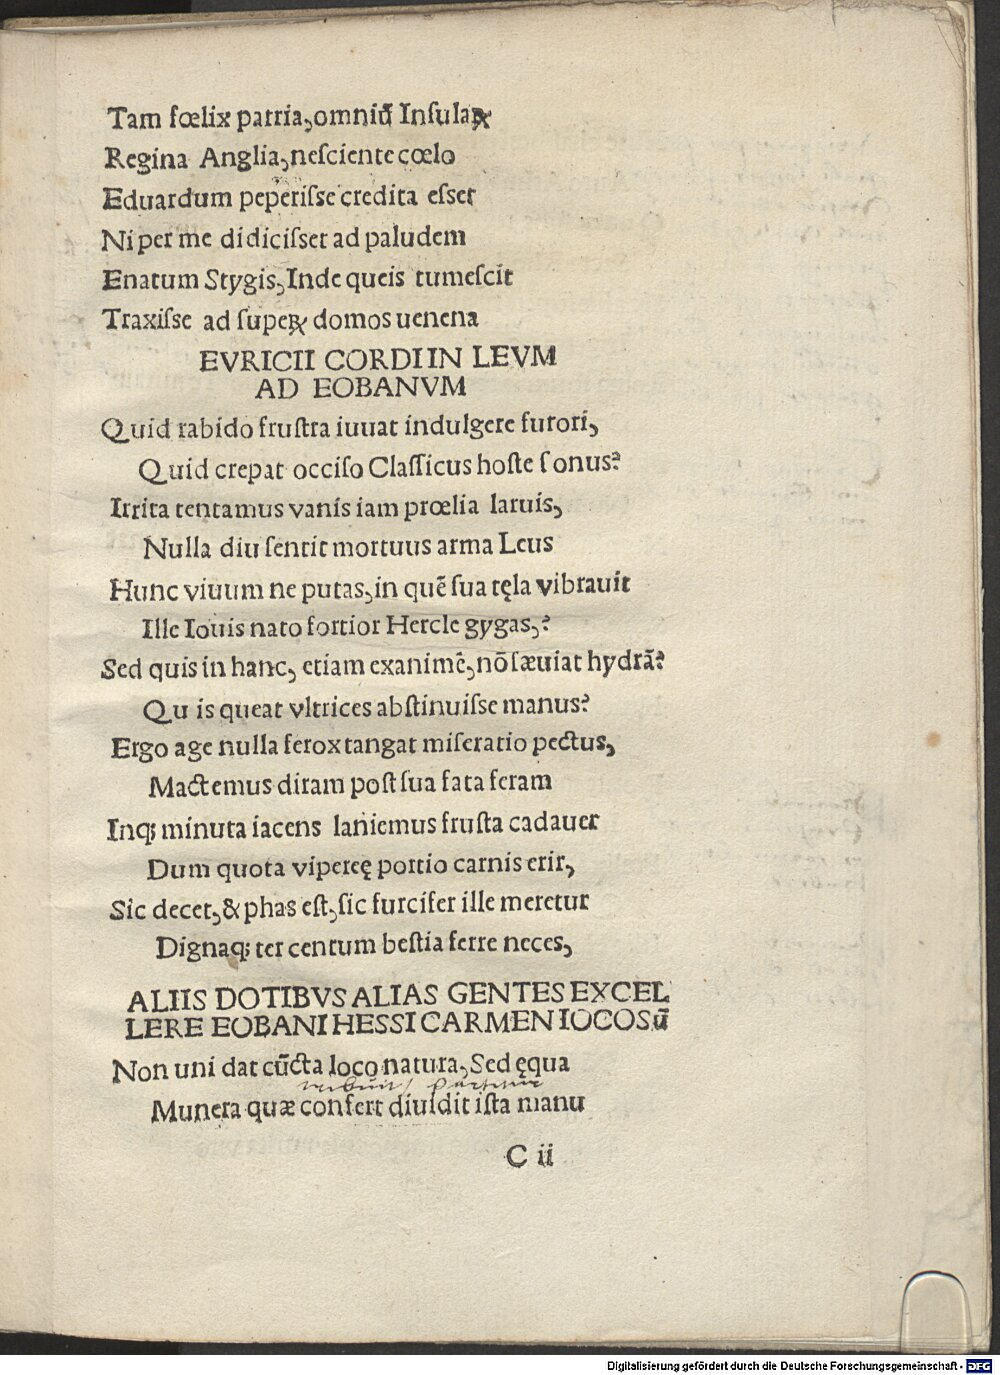 Tam fœlix patria, omniū Insulaꝝ
Regina Anglia, nesciente cœlo
Eduardum peperiſse credita eſset
Ni per me didiciſset ad paludem
Enatum Stygis, Inde queis tumeſcit
Traxiſse ad ſupeꝝ domos uenena
EVRICII CORDI IN LEVM
AD EOBANVM
Quid rabido fruſtra iuuat indulgere furori,
Quid crepat occiſo Claſſicus hoſte ſonus?
Irrita tentamus vanis iam prœlia laruis,
Nulla diu ſentit mortuus arma Leus
Hunc viuum ne putas, in quē ſua tęla vibrauit
Ille Iouis nato fortior Hercle gygas,?
Sed quis in hanc, etiam exanimē, nō ſæuiat hydrā?
Qu is queat vltrices abſtinuiſse manus?
Ergo age nulla ferox tangat miſeratio pectus,
Mactemus diram poſt ſua fata feram
Inq; minuta iacens laniemus fruſta cadauer
Dum quota vipereę portio carnis erit,
Sic decet, & phas eſt, ſic furcifer ille meretur
Dignaq; ter centum beſtia ferre neces,
ALIIS DOTIBVS ALIAS GENTES EXCEL
LERE EOBANI HESSI CARMEN IOCOSū
Non uni dat cūcta loco natura, Sed ęqua
Munera quæ confert diuidit iſta manu
C ii
Digitalisierung gefördert durch die Deutsche Forschungsgemeinschaft - DFG